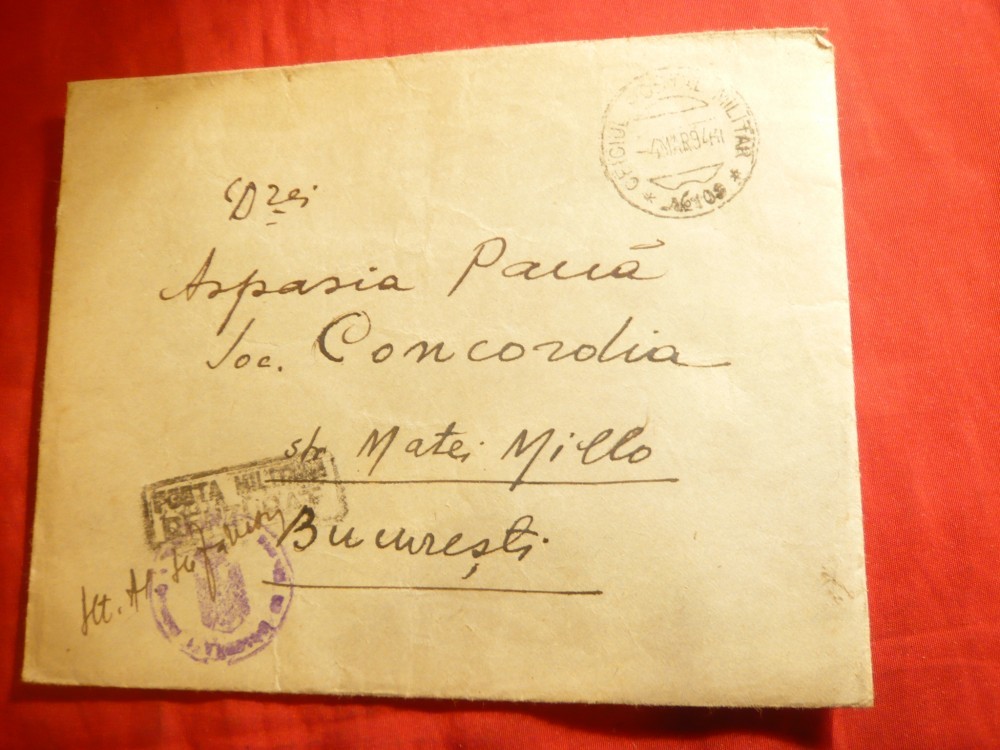 OFICIUL POSTAL MILITAR
4 MAR 941
No 105
Drei
Aspasia Paună
soc. Concordia
str. Matei Millo
POSTA MILITARA
București
slt. Al.